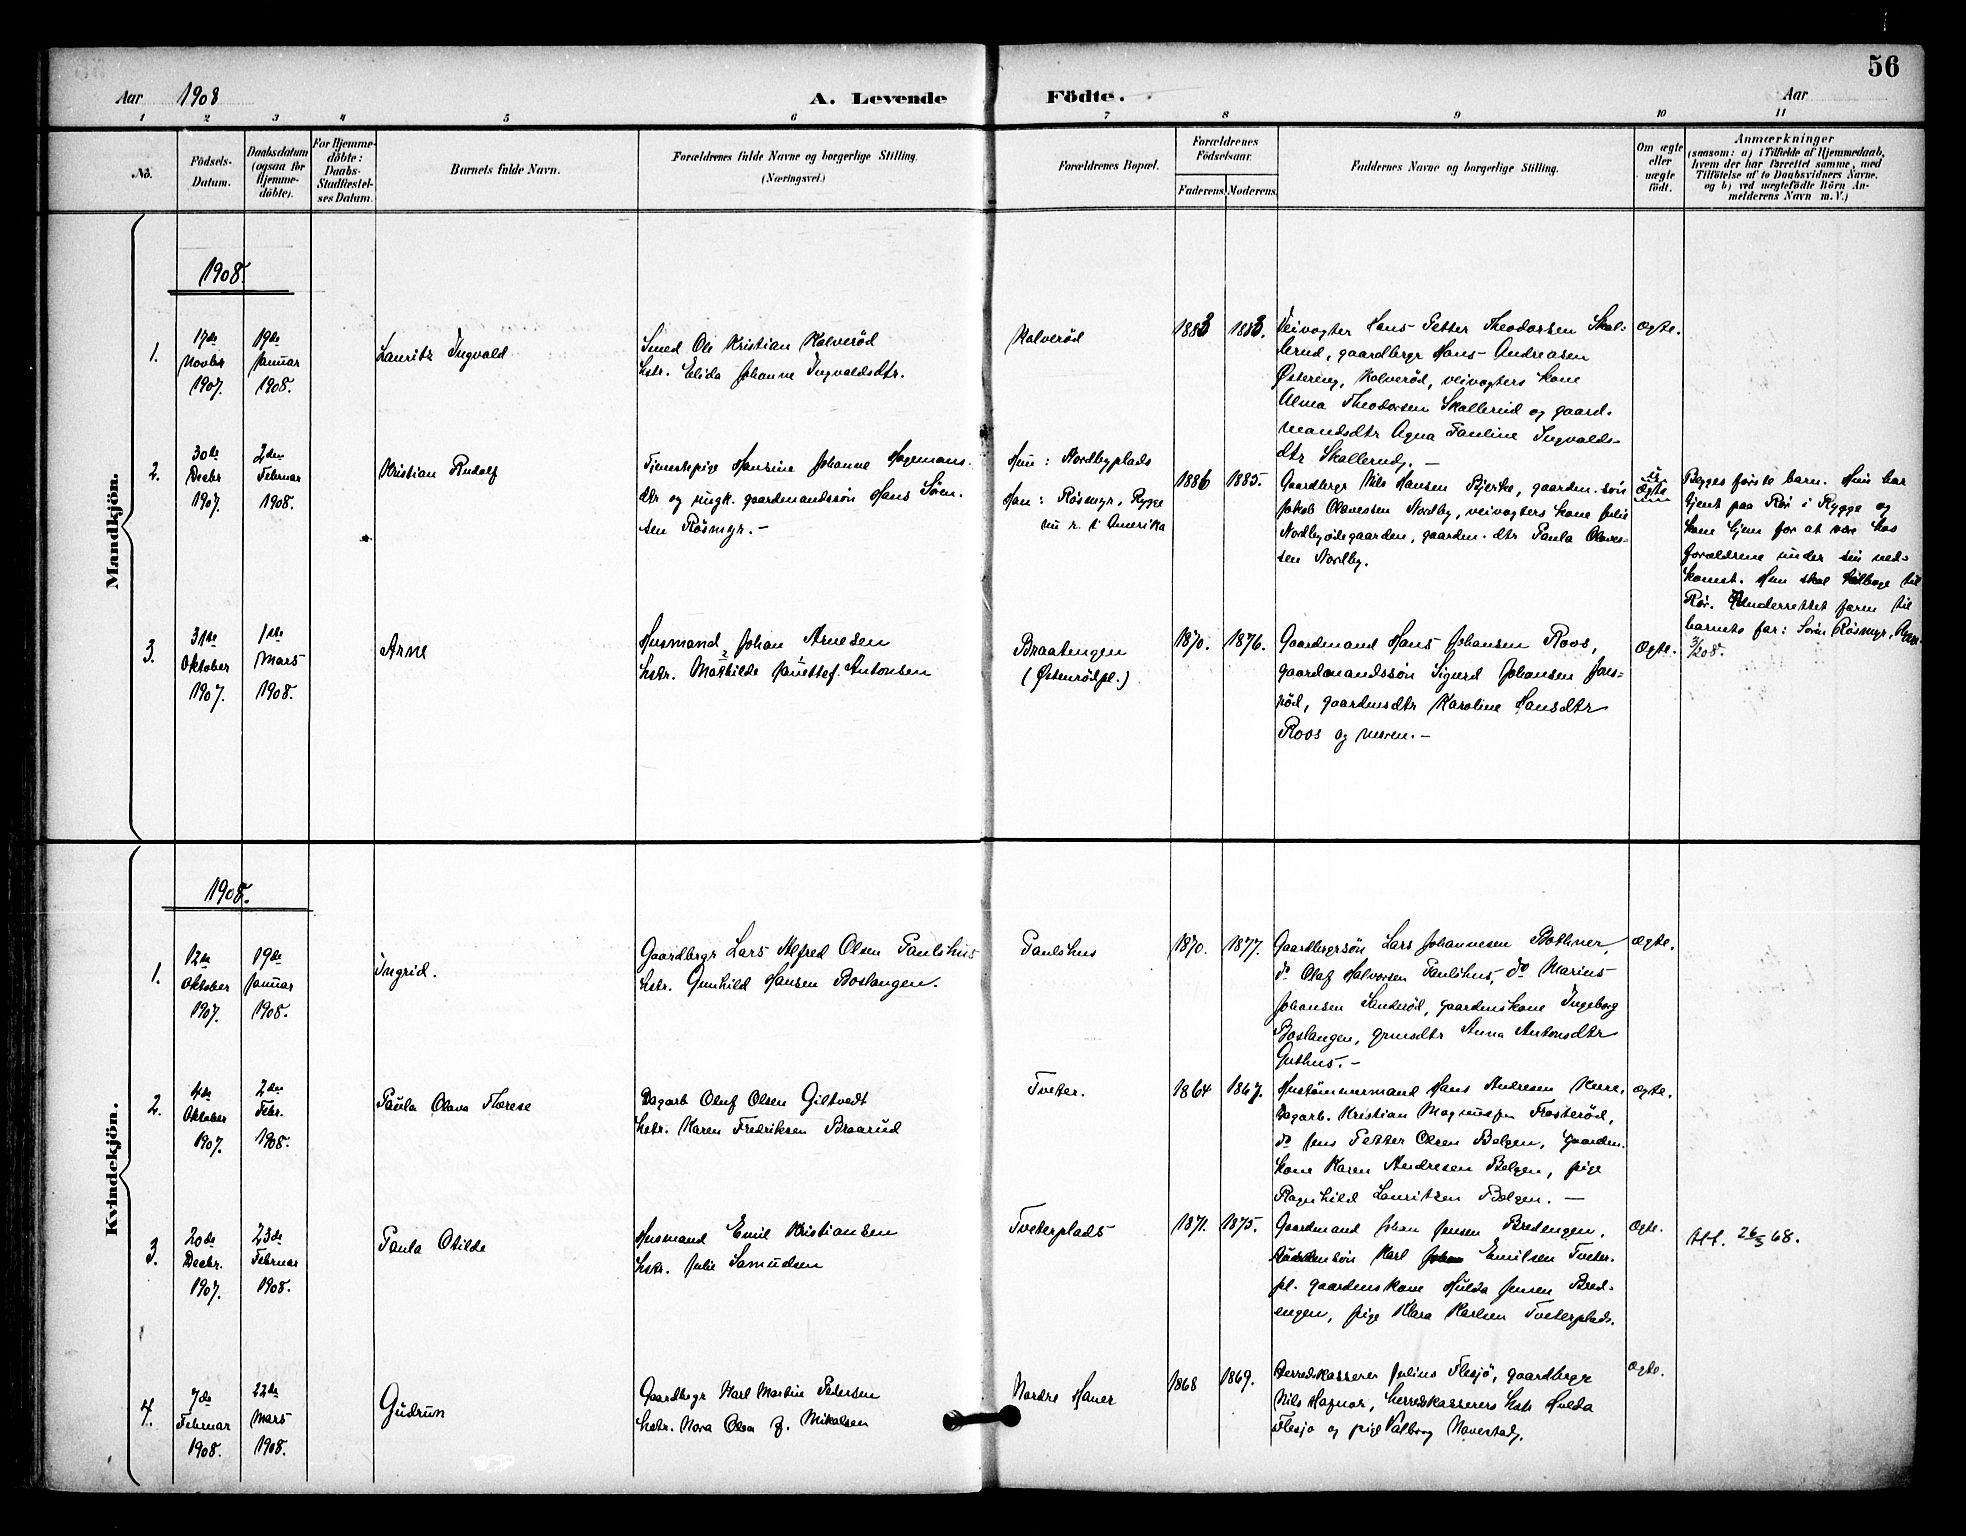 56
Aar 1908 A. Levende Födte. Aar
1 2 3 4 5 6 7 8 9 10 11
No. Födsels-Datum. Daabsdatum (ogsaa for Hjemmedöbte). For Hjemmedöbte: Daabs-Stadfæstelses Datum. Barnets fulde Navn. Forældrenes fulde Navne og borgerlige Stilling. (Næringsvei.) Forældrenes Bopæl. Forældrenes Födselsaar. Faderens. Moderens. Faddernes Navne og borgerlige Stilling. Om ægte eller uægte födt. Anmærkninger (saasom: a) i Tilfælde af Hjemmedaab, hvem der har forrettet samme, med Tilföielse af to Daabsvidners Navne. og b) ved uægtefödte Börn Anmelderens Navn m. V.)
Mandkjön.
1908.
1. 17de Novbr 1907. 19de Januar 1908.
Lauritz Ingvald
Smed Ole Kristian Kolverød
hstr. Elida Johanne Ingvaldsdtr.
Kolverød
1883 1883.
Veivogter Hans Petter Theodorsen Skal-
lerud, gaardbrgr Hans Andreasen
Østereng, Kolverød, veivogters kone
Alma Theodorsen Skallerud og gaard-
mandsdtr Agna Pauline Ingvalds-
dtr Skallerud. —
Ægte.
2. 30te Decbr 1907. 2den Februar 1908.
Kristian Rudolf
Tjenestepige Hansine Johanne Hagemans-
dtr og ungk. gaardmandssøn Hans Søren-
sen Røsmyr. —
Hun: Nordbyplads
Han: Røsmyr, Rygge
nu r. i Amerika
1886 1885.
Gaardbrgr Nils Hansen Bjerke, gaardm. søn
Jakob Olavessen Nordby, veivogters kone Julie
Nordbyødegaarden, gaardm. dtr Paula Olaves-
sen Nordby.
u
Ægte
Begges første barn. Hun har
tjent paa Rør i Rygge og
kom hjem for at være hos
forældrene under sin ned-
komst. Hun skal tilbage til
Rør. Underrettet farm til
barnets far: Søren Røsmyr,
3/2 08.
3. 31te Oktober 1907. 1ste Mars 1908.
Arne
Husmand Johan Arnesen
hstr. Mathilde Antonsen
Braatengen
(Østenrødpl.)
1870. 1876.
Gaardmand Hans Johansen Roos,
gaardmandssøn Sigurd Johansen Jons-
rød, gaardmsdtr Karoline Hansdtr
Roos og moren. —
Ægte.
Kvindekjön.
1908.
1. 12te Oktober 1907. 19de Januar 1908.
Ingrid.
Gaardbrgr Lars Alfred Olsen Paulshus
hstr. Gunhild Hansen Boslangen.
Paulshus
1870. 1877.
Gaardbrgrsøn Lars Johannesen Bothner,
do Olaf Halvorsen Paulshus, do Marius
Johansen Sanderød, gaardmskone Ingeborg
Boslangen, grmsdtr Anna Antonsdtr
Guthus. —
Ægte.
2. 4de Oktober 1907. 2den Febr. 1908.
Paula Olava Therese
Dagarb Oluf Olsen Giltvedt
hstr. Karen Fredriksen Braarud
Tveter.
1864 1867.
Hustømmermand Hans Andresen
Dagarb. Kristian Magnussen Frosterød,
do Jens Petter Olsen Belgen, gaardm.
kone Karen Andresen Belgen, pige
Ragnhild Lauritsen Belgen. —
Ægte.
3. 20de Decbr. 1907. 23de Februar 1908.
Paula Otilde
Husmand Emil Kristiansen
hstr. Julie Samuelsen
Tveterplads
1871. 1875.
Gaardmand Johan Jensen Bredengen,
Karl Emilsen Tveter-
pl. gaardmskone Hulda Jensen Bred-
engen, pige Klara Karlsen Tveterplads.
Ægte.
Att. 26/3 68.
4. 7de Februar 1908. 22de Mars 1908.
Gudrun
Gaardbrgr Karl Martin Pedersen
hstr. Nora Olava f. Mikalsen
Nordre Haner
1868 1869.
Herredskasserer Julius Flesjø, gaardbrgr
Nils Hagnor, herredskasserers hstr Hulda
Flesjø og pige Valborg Navestad.
Ægte.